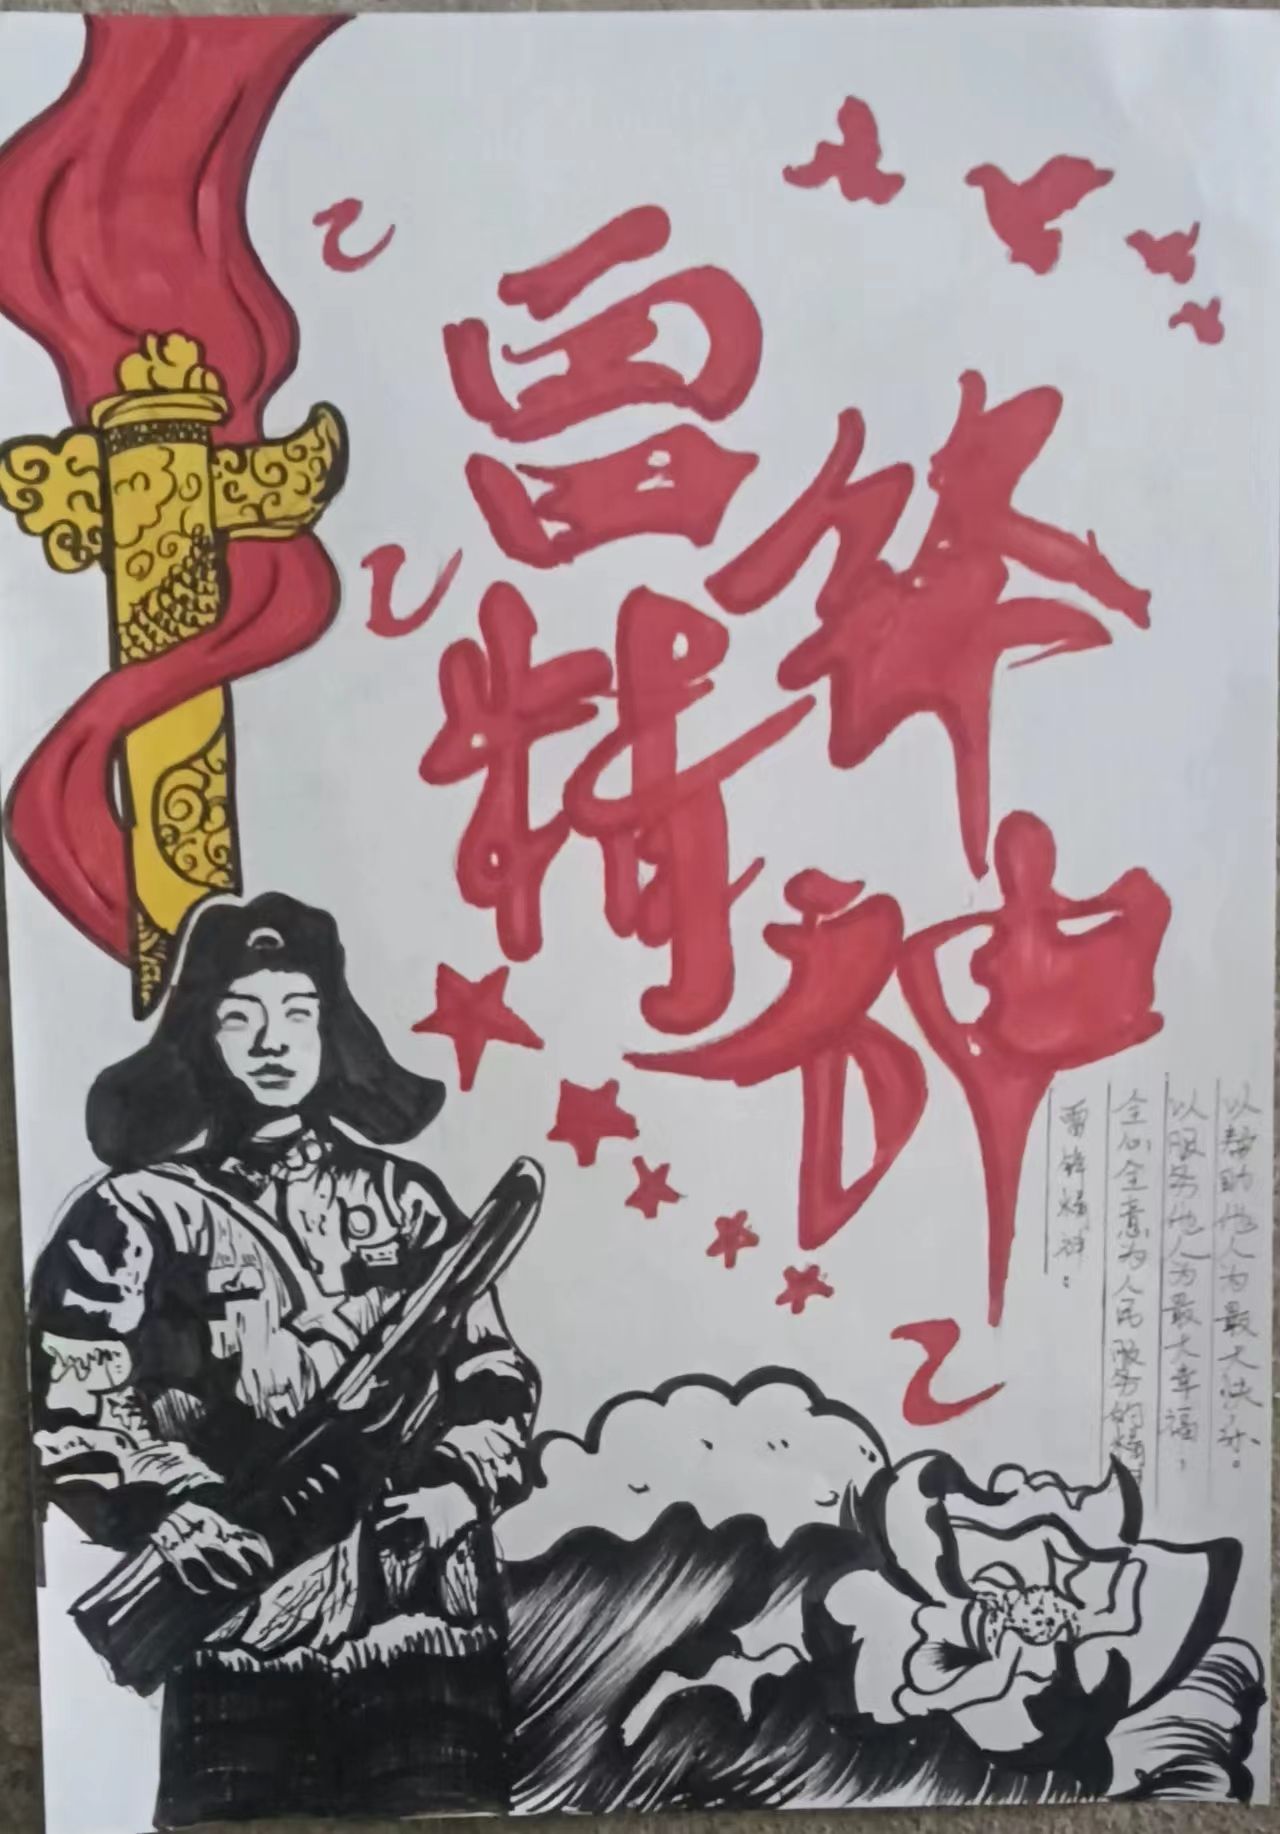 雷锋
精神
雷锋精神：
全心全意为人民服务的精
以服务他人为最大幸福，
以帮助他人为最大快乐。